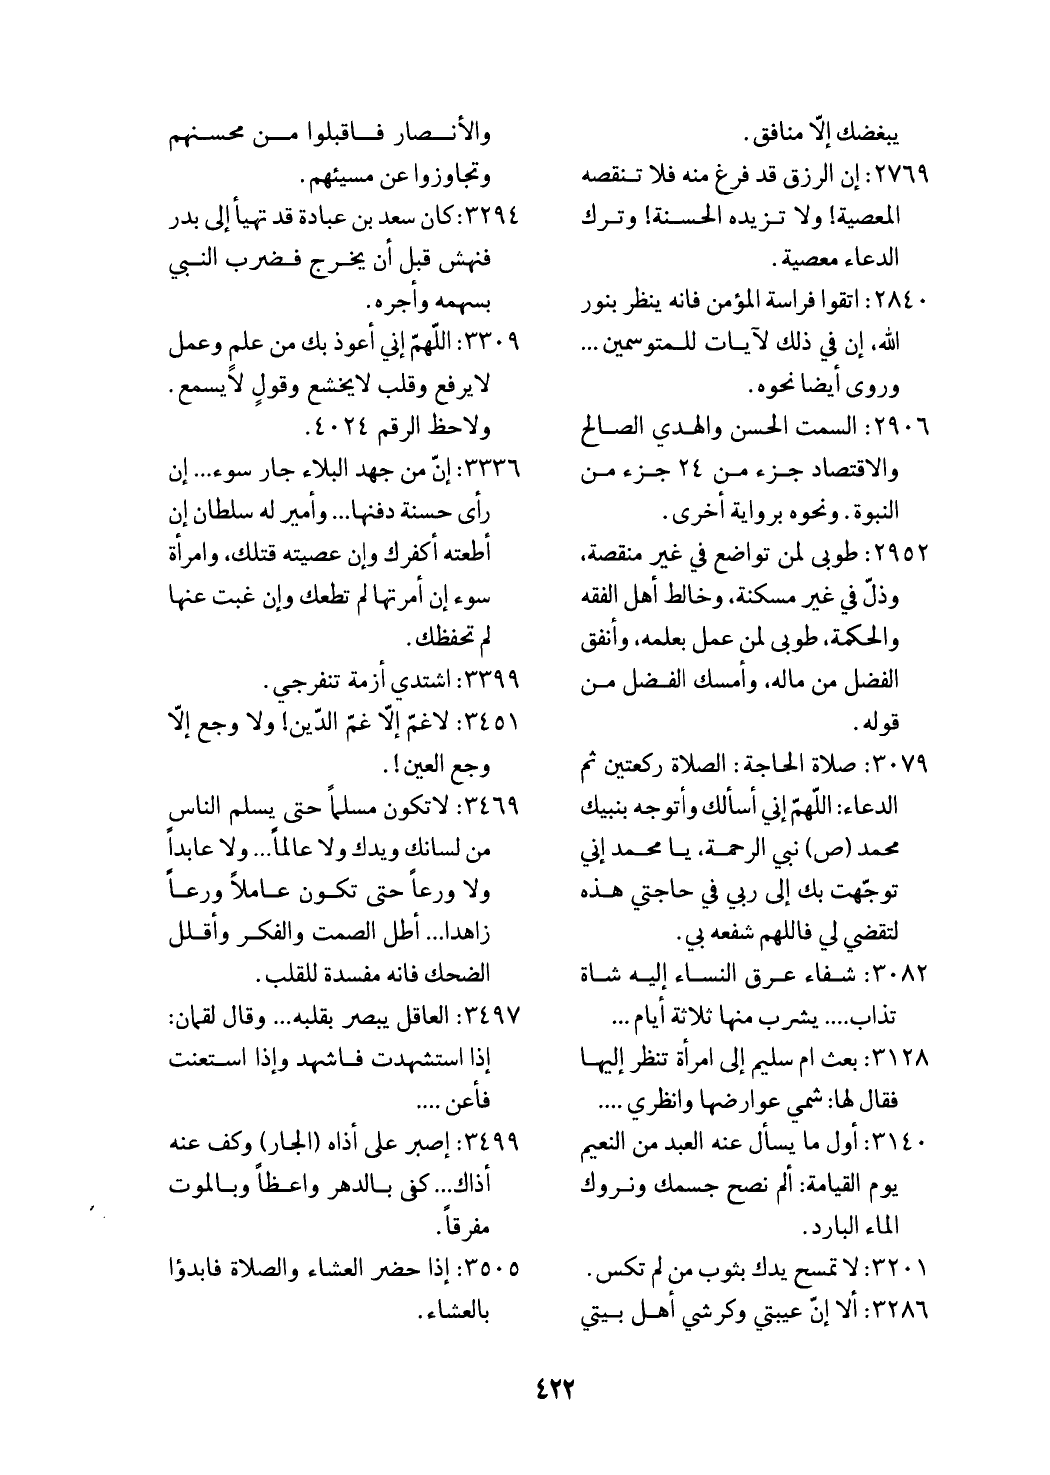 يبغضك إلّا منافق.
٢٧٦٩: إن الرزق قد فرغ منه فلا تـنقصه
المعصية! ولا تـزيده الحسـنة! وتـرك
الدعاء معصية.
٢٨٤٠: اتقوا فراسة المؤمن فانه ينظر بنور
الله، إن في ذلك لآيـات للـمتوسمين...
وروى أيضا نحوه.
٢٩٠٦: السمت الحسن والهـدي الصـالح
والاقتصاد جـزء مـن ٢٤ جـزء مـن
النبوة. ونحوه برواية أخرى.
٢٩٥٢: طوبى لمن تواضع في غير منقصة،
وذلّ في غير مسكنة، وخالط أهل الفقه
والحكمة، طوبى لمن عمل بعلمه، وأنفق
الفضل من ماله، وأمسك الفـضل مـن
قوله.
٣٠٧٩: صلاة الحاجة: الصلاة ركعتين ثم
الدعاء: اللّهمّ إني أسألك وأتوجه بنبيك
محمد (ص) نبي الرحمـة، يـا محـمد إني
توجّهت بك إلى ربي في حاجتي هـذه
لتقضي لي فاللهم شفعه بي.
٣٠٨٢: شـفاء عـرق النسـاء إليـه شـاة
تذاب.... يشرب منها ثلاثة أيام...
٣١٢٨: بعث ام سليم إلى امرأة تنظر إليهـا
فقال لها: شمي عوارضها وانظري....
٣١٤٠: أول ما يسأل عنه العبد من النعيم
يوم القيامة: ألم نصح جسمك ونـروك
الماء البارد.
٣٢٠١: لا تمسح يدك بثوب من لم تكس.
٣٢٨٦: ألا إنّ عيبتي وكرشي أهـل بـيتي
والأنـصار فـاقبلوا مـن محسـنهم
وتجاوزوا عن مسيئهم.
٣٢٩٤: كان سعد بن عبادة قد تهيأ إلى بدر
فنهش قبل أن يخـرج فـضرب النـبي
بسهمه وأجره.
٣٣٠٩: اللّهمّ إني أعوذ بك من علمٍ وعمل
لايرفع وقلب لايخشع وقولٍ لايسمع.
ولاحظ الرقم ٤٠٢٤.
٣٣٣٦: إنّ من جهد البلاء جار سوء... إن
رأى حسنة دفنها... وأمير له سلطان إن
أطعته أكفرك وإن عصيته قتلك، وامرأة
سوء إن أمرتها لم تطعك وإن غبت عنها
لم تحفظك.
٣٣٩٩: اشتدي أزمة تنفرجي.
٣٤٥١: لاغمّ إلّا غمّ الدّين! ولا وجع إلّا
وجع العين!.
٣٤٦٩: لاتكون مسلماً حتى يسلم الناس
من لسانك ويدك ولا عالماً... ولا عابداً
ولا ورعاً حتى تكـون عـاملاً ورعـاً
زاهدا... أطل الصمت والفكـر وأقـلل
الضحك فانه مفسدة للقلب.
٣٤٩٧: العاقل يبصر بقلبه... وقال لقمان:
إذا استشهدت فـاشهد وإذا اسـتعنت
فأعن....
٣٤٩٩: إصبر على أذاه (الجار) وكف عنه
أذاك... كفى بـالدهر واعـظاً وبـالموت
مفرقاً.
٣٥٠٥: إذا حضر العشاء والصلاة فابدؤا
بالعشاء.
٤٢٢